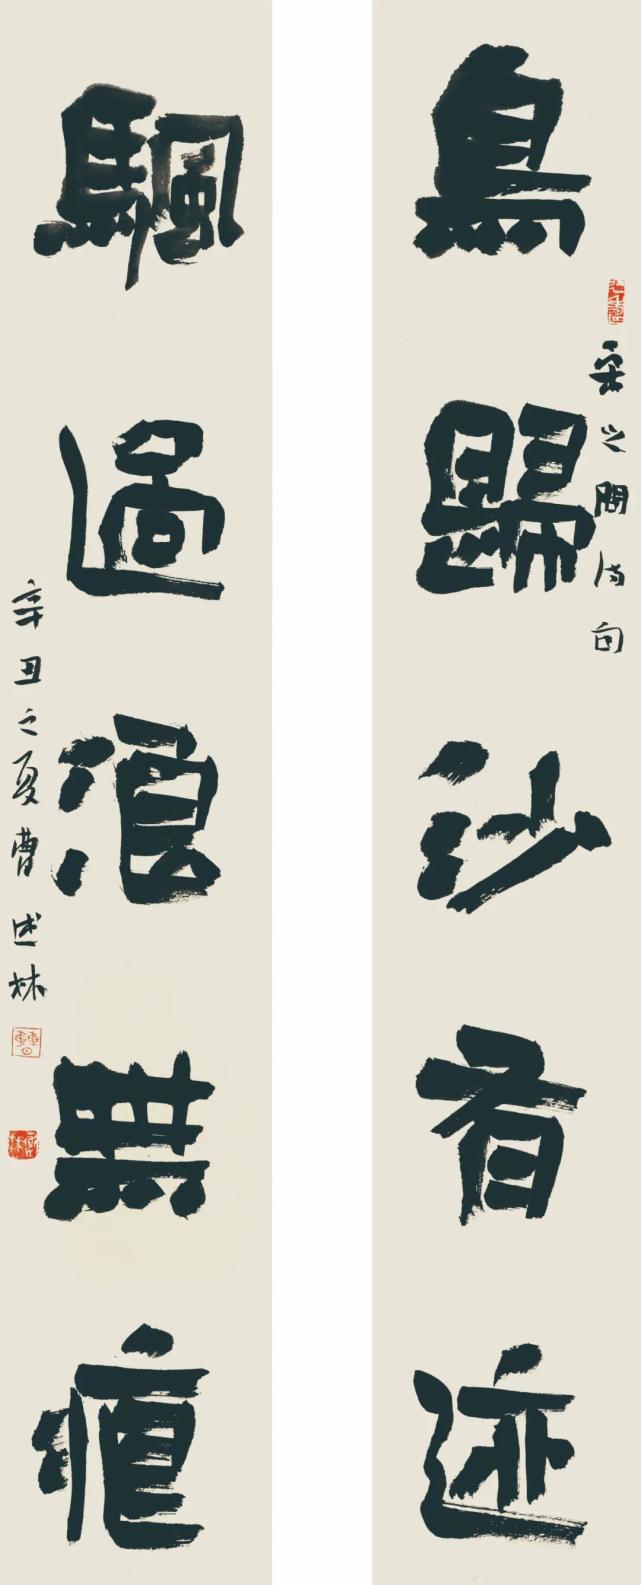 鳥歸沙有迹
宋之問诗句
颿過浪無痕
辛丑之夏曹述林